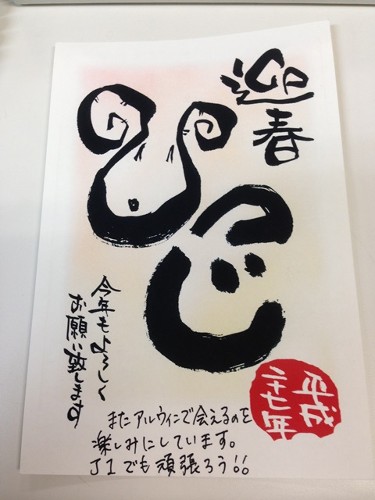 迎春
ひつじ
今年もよろしく
お願い致します
平成
二十七年
またアルウィンで会えるのを
楽しみにしています。
J1でも頑張ろう!!